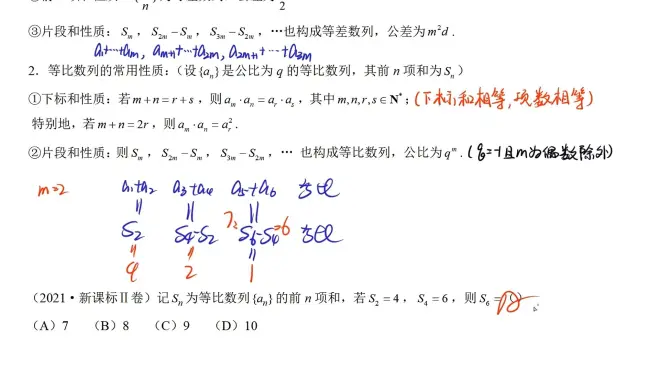 ③片段和性质：Sₘ，S₂ₘ−Sₘ，S₃ₘ−S₂ₘ，…也构成等差数列，公差为m²d.
a₁+…+aₘ, aₘ₊₁+…+a₂ₘ, a₂ₘ₊₁+…+a₃ₘ
2．等比数列的常用性质：（设{aₙ}是公比为 q 的等比数列，其前 n 项和为Sₙ）
①下标和性质：若m+n=r+s，则aₘ·aₙ=aᵣ·aₛ，其中m,n,r,s∈N*；(下标和相等，项数相等)
特别地，若m+n=2r，则aₘ·aₙ=aᵣ².
②片段和性质：则Sₘ，S₂ₘ−Sₘ，S₃ₘ−S₂ₘ，… 也构成等比数列，公比为qᵐ.(q=-1且m为偶数除外)
m=2 a₁+a₂ a₃+a₄ a₅+a₆ 等比
|| || ||
S₂ S₄-S₂ 7= S₆-S₄=6 等比
|| || ||
4 2 1
（2021·新课标Ⅱ卷）记Sₙ为等比数列{aₙ}的前 n 项和，若S₂=4，S₄=6，则S₆=（ ）
（A）7 （B）8 （C）9 （D）10